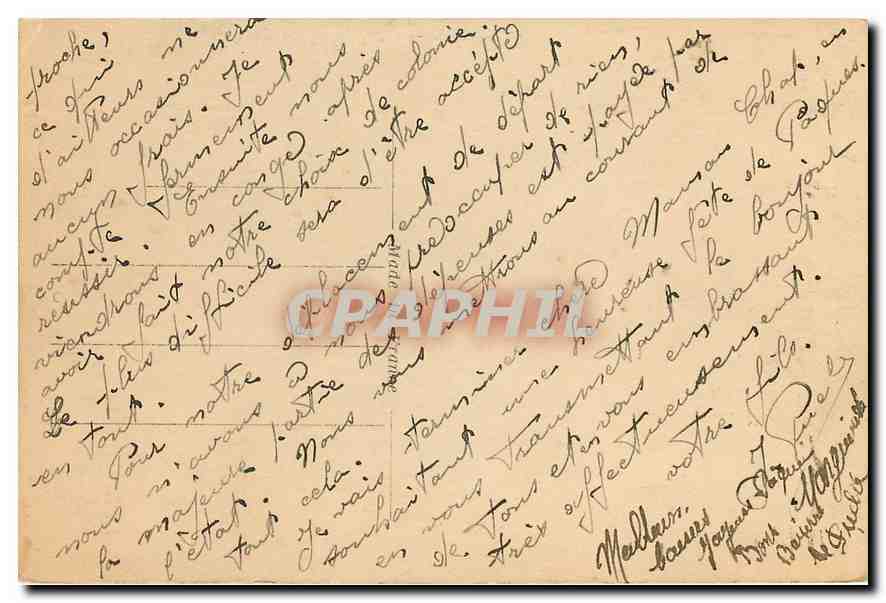 proche,
ce qui
d'ailleurs ne
nous occasionnera
aucun frais. Je
compte fermement
réussir. Ensuite nous
viendrons en congé après
avoir fait notre choix de colonie.
Le plus difficile sera d'être accepté
en tout.
Pour notre déplacement de départ
nous n'avons à nous préoccuper de rien,
la majeure partie des dépenses est payée par
l'état. Nous vous mettrons au courant de
tout cela.
Je vais terminer chère Maman Chat, en
souhaitant une heureuse fête de Pâques.
en vous transmettant le bonjour
de tous et en vous embrassant
très affectueusement.
votre fils.
Meilleurs
baisers
Jacques
Bons
Baisers
Marguerite
Made in France
CPAPHIL